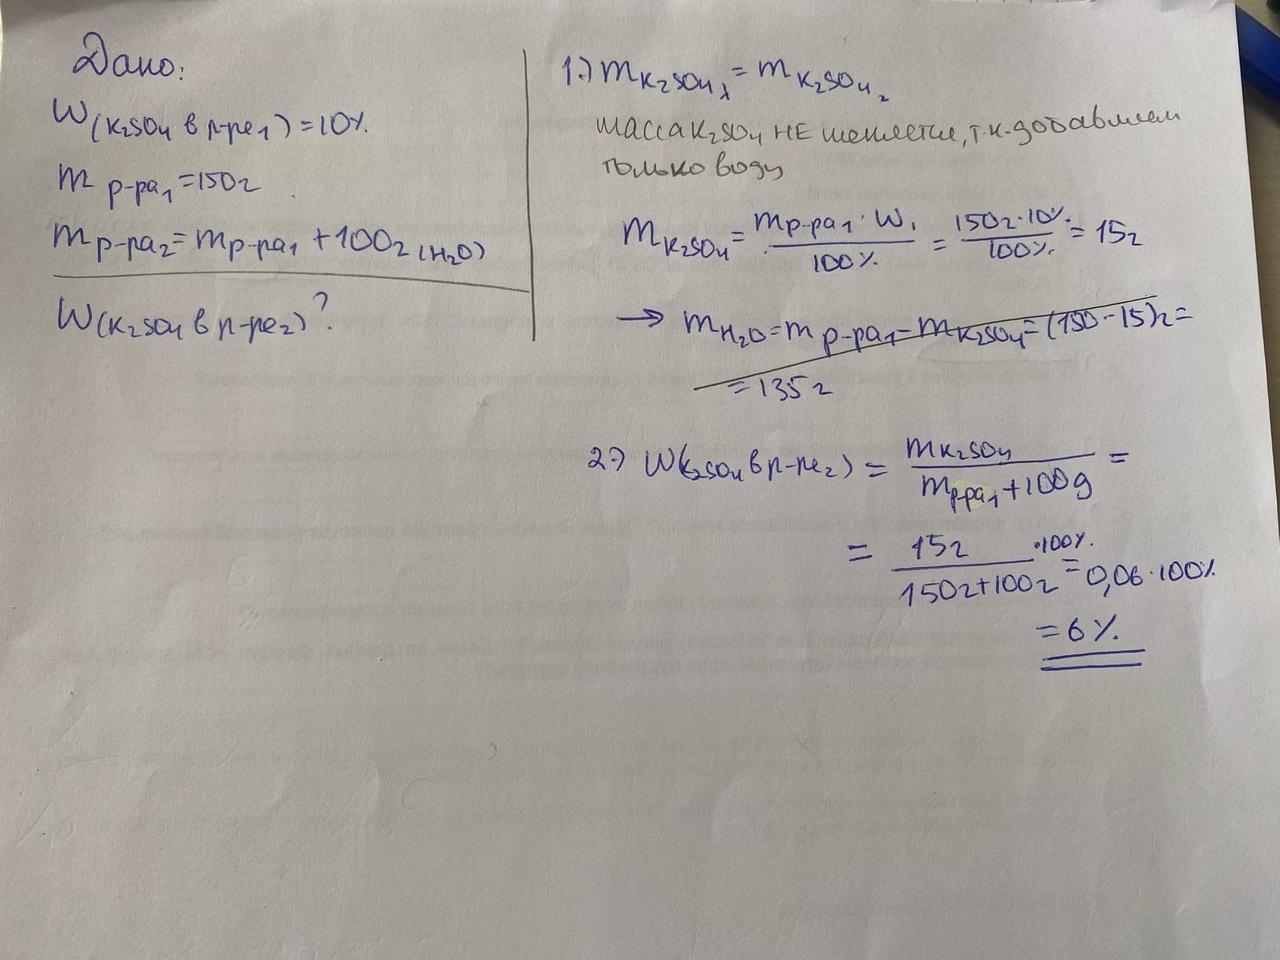 Дано:
W(K₂SO₄ в р-ре₁) = 10%.
m р-ра₁ = 150г
m р-ра₂ = m р-ра₁ + 100г (H₂O)
W(K₂SO₄ в р-ре₂)?
1.) m K₂SO₄ ₁ = m K₂SO₄ ₂
масса K₂SO₄ НЕ меняется, т.к. добавляем
только воду
m K₂SO₄ = m р-ра₁ · W₁ / 100% = 150г · 10% / 100% = 15г
→ m H₂O = m р-ра₁ – m K₂SO₄ = (150 – 15)г =
= 135г
2.) W(K₂SO₄ в р-ре₂) = m K₂SO₄ / m р-ра₁ + 100g =
= 15г / 150г + 100г · 100% = 0,06 · 100%
= 6%